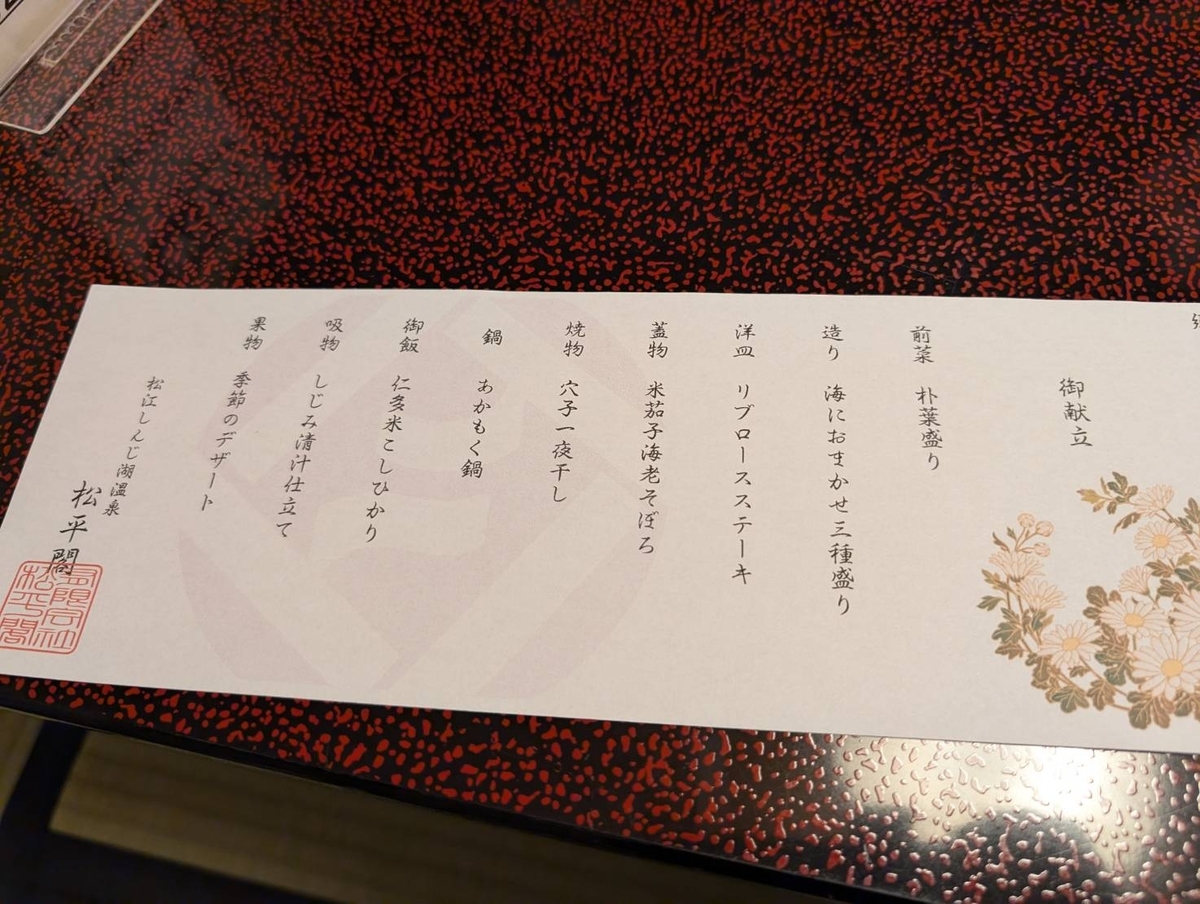 御献立
前菜 朴葉盛り
造り 海におまかせ三種盛り
洋皿 リブロースステーキ
蓋物 米茄子海老そぼろ
焼物 穴子一夜干し
鍋 あかもく鍋
御飯 仁多米こしひかり
吸物 しじみ清汁仕立て
果物 季節のデザート
松江しんじ湖温泉
松平閣
有限会社
松平閣